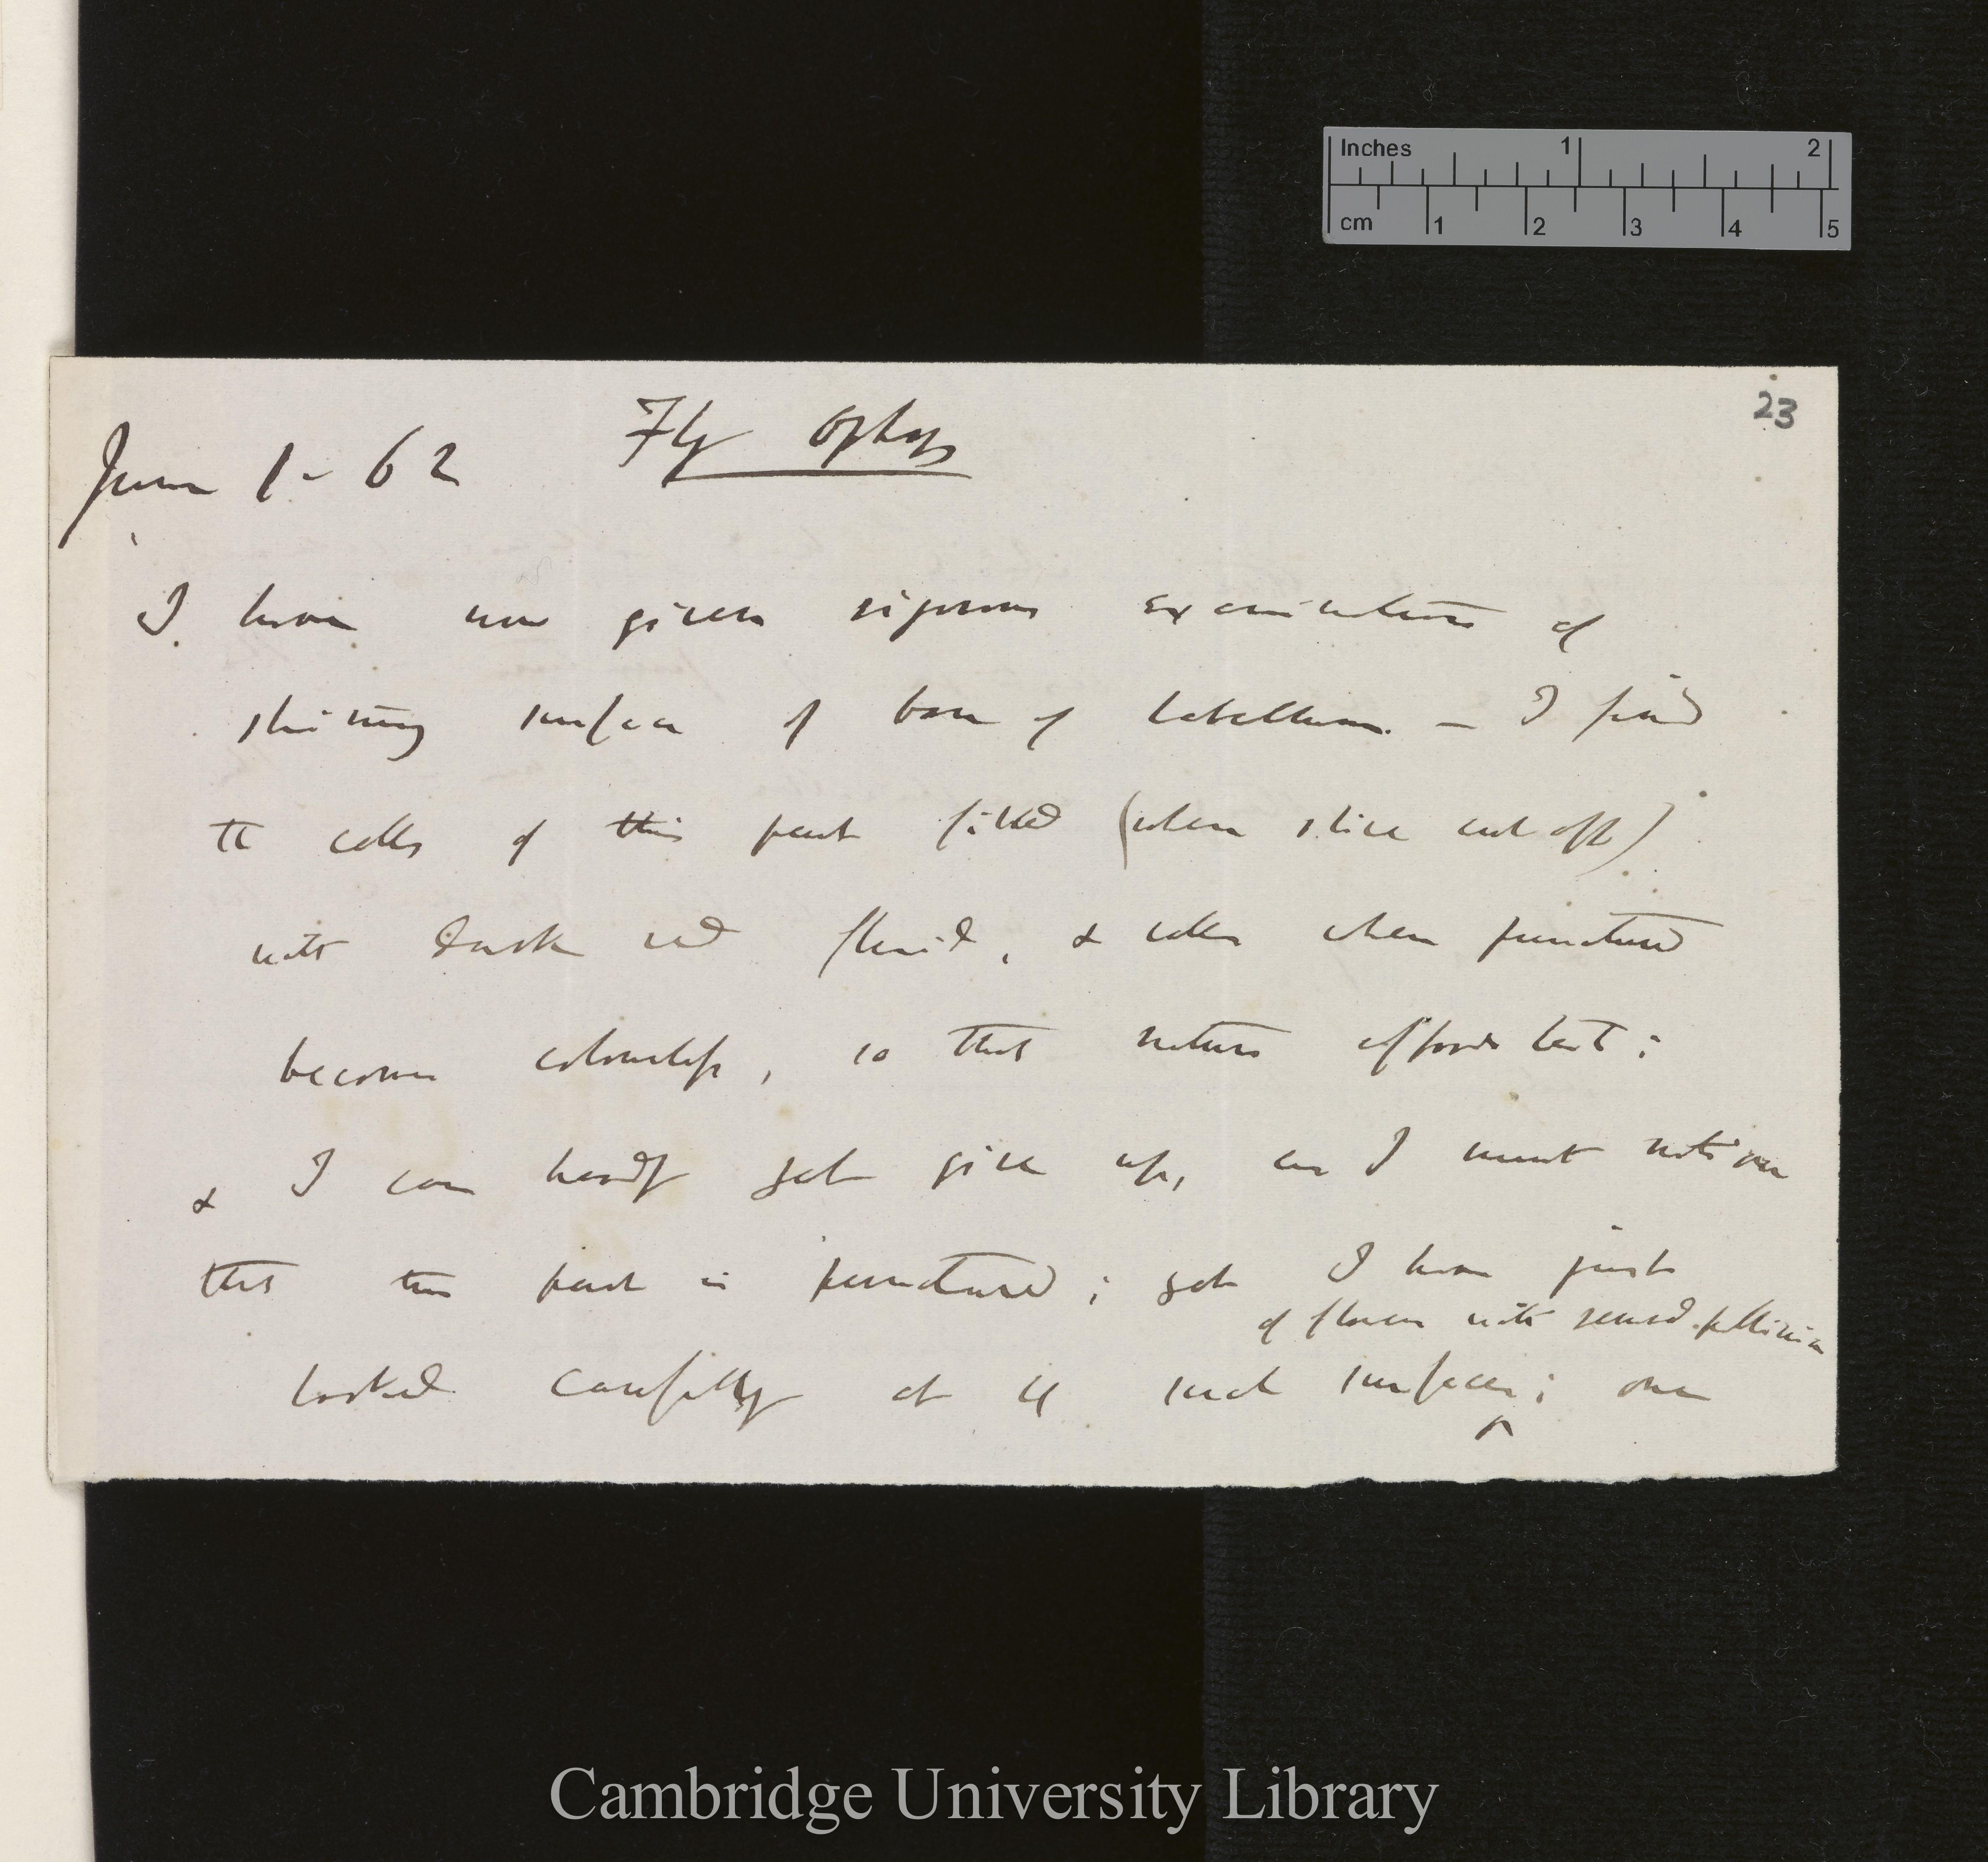 Inches 1 2
cm 1 2 3 4 5
23
June 1 - 62 Fly Ophrys
I have now given rigorous examination of
shining surface of base of labellum. — I find
the cells of this part filled (when slice cut off)
with dark red fluid, & cells when punctured
become colourless, so that nature affords test;
& I can hardly yet give up, as I must notion
that this part is punctured; yet I have just
of flowers with removed pollinia
looked carefully at 4 such surfaces; one
Cambridge University Library